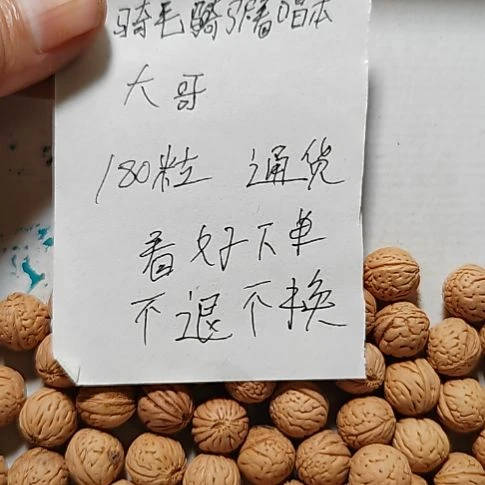 骑毛驴看唱本
大哥
180粒 通货
看好下单
不退不换